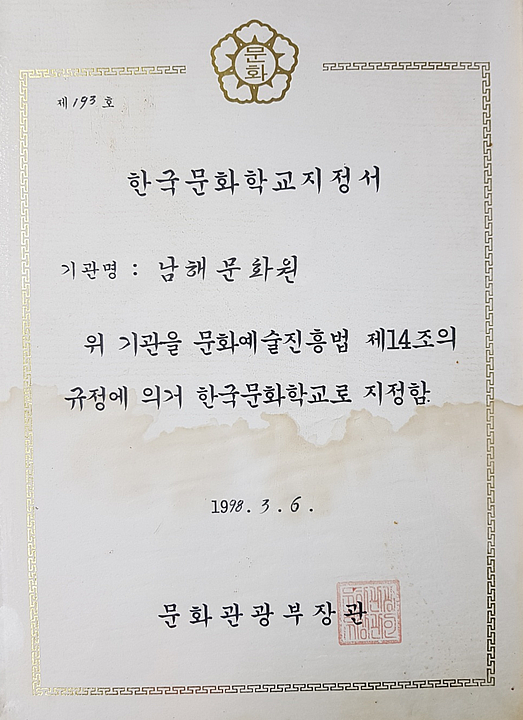 문화
제 193 호
한국문화학교지정서
기관명 : 남해문화원
위 기관을 문화예술진흥법 제14조의
규정에 의거 한국문화학교로 지정함.
1998. 3. 6.
문화관광부장관